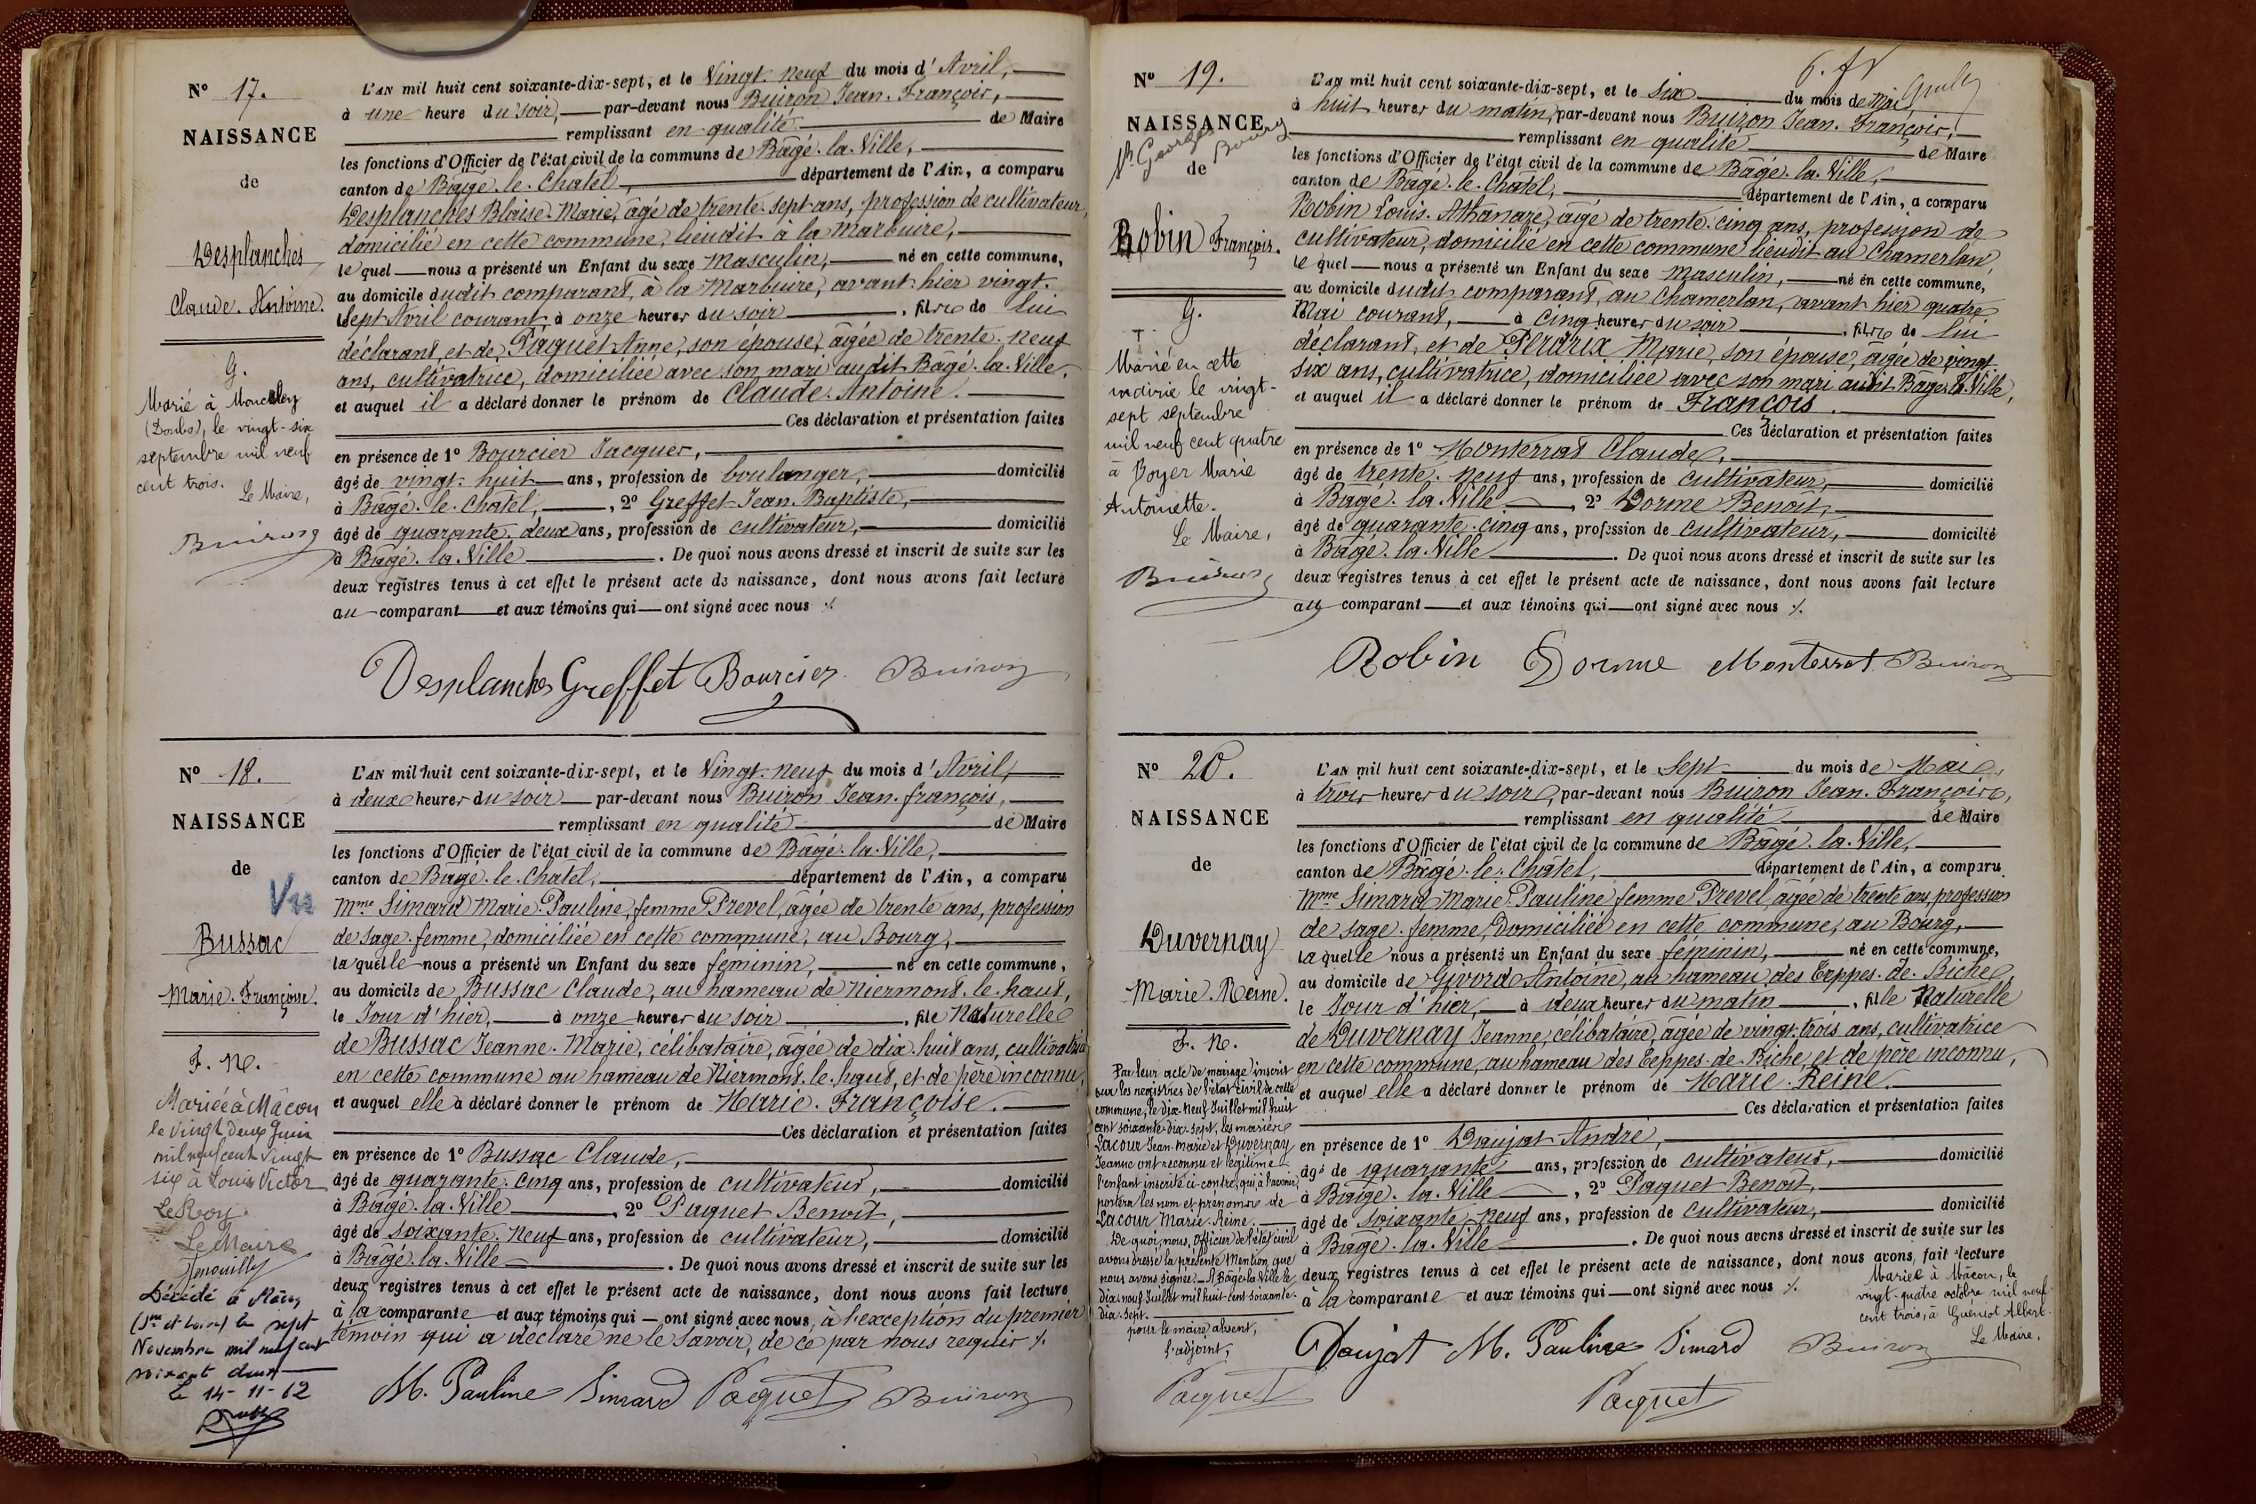 N° 17.
NAISSANCE
de
Desplanches
Claude. Antoine.
G.
Marié à Moncley
(Doubs), le vingt-six
septembre mil neuf
cent trois.
Le Maire,
Buiron
L'AN mil huit cent soixante-dix-sept, et le Vingt. neuf du mois d'Avril,
à une heure du soir, par-devant nous Buiron Jean. François,
remplissant en qualité de Maire
les fonctions d'Officier de l'état civil de la commune de Bâgé. la. Ville,
canton de Bâgé. le. Chatel, département de l'Ain, a comparu
Desplanches Blaise. Marie, âgé de trente. sept ans, profession de cultivateur,
domicilié en cette commune, lieudit à la Marbuire,
lequel nous a présenté un Enfant du sexe masculin, né en cette commune,
au domicile dudit comparant, à la Marbuire, avant hier vingt.
sept Avril courant, à onze heures du soir, fils de lui
déclarant, et de Paquet Anne, son épouse, âgée de trente. neuf
ans, cultivatrice, domiciliée avec son mari audit Bâgé. la. Ville,
et auquel il a déclaré donner le prénom de Claude. Antoine.
Ces déclaration et présentation faites
en présence de 1° Bourcier Jacques,
âgé de vingt. huit ans, profession de boulanger, domicilié
à Bâgé. le. Chatel, , 2° Greffet Jean. Baptiste,
âgé de quarante. deux ans, profession de cultivateur, domicilié
à Bâgé. la. Ville . De quoi nous avons dressé et inscrit de suite sur les
deux registres tenus à cet effet le présent acte de naissance, dont nous avons fait lecture
au comparant et aux témoins qui ont signé avec nous ./.
Desplanches Greffet Bourcier Buiron
N° 18.
NAISSANCE
de
Vu
Bussac
Marie. Françoise.
F. N.
Mariée à Mâcon
le vingt deux Juin
mil neuf cent vingt
six à Louis Victor
Le Roy.
Le Maire
Décédé à Mâcon
(Sne et Loire) le sept
Novembre mil neuf cent
soixant deux
Le 14-11-62
L'AN mil huit cent soixante-dix-sept, et le Vingt. neuf du mois d'Avril,
à deux heures du soir par-devant nous Buiron Jean. françois,
remplissant en qualité de Maire
les fonctions d'Officier de l'état civil de la commune de Bâgé. la. Ville,
canton de Bâgé. le. Chatel, département de l'Ain, a comparu
Mme Simard Marie. Pauline, femme Prevel, âgée de trente ans, profession
de sage. femme, domiciliée en cette commune, au Bourg,
laquelle nous a présenté un Enfant du sexe féminin, né en cette commune,
au domicile de Bussac Claude, au hameau de Niermont. le. haut,
le Jour d'hier, à onze heures du soir, file Naturelle
de Bussac Jeanne. Marie, célibataire, âgée de dix. huit ans, cultivatrice
en cette commune au hameau de Niermont. le. haut, et de père inconnu,
et auquel elle a déclaré donner le prénom de Marie. Françoise.
Ces déclaration et présentation faites
en présence de 1° Bussac Claude,
âgé de quarante. cinq ans, profession de cultivateur, domicilié
à Bâgé. la. Ville , 2° Paquet Benoit,
âgé de soixante. neuf ans, profession de cultivateur, domicilié
à Bâgé. la. Ville . De quoi nous avons dressé et inscrit de suite sur les
deux registres tenus à cet effet le présent acte de naissance, dont nous avons fait lecture
à la comparante et aux témoins qui ont signé avec nous, à l'exception du premier
témoin qui a déclaré ne le savoir, de ce par nous requis ./.
M. Pauline Simard Pacquet Buiron
N° 19.
NAISSANCE
St Georges
Bourg
de
Robin François.
G.
Marié en cette
mairie le vingt-
sept septembre
mil neuf cent quatre
à Boyer Marie
Antoinette.
Le Maire,
Buiron
L'AN mil huit cent soixante-dix-sept, et le six du mois de Mai
à huit heures du matin, par-devant nous Buiron Jean. François,
remplissant en qualité de Maire
les fonctions d'Officier de l'état civil de la commune de Bâgé. la. Ville,
canton de Bâgé. le. Châtel, département de l'Ain, a comparu
Robin Louis. Athanaze, âgé de trente. cinq ans, profession de
cultivateur, domicilié en cette commune lieudit au Chamerlan,
lequel nous a présenté un Enfant du sexe masculin, né en cette commune,
au domicile dudit comparant, au Chamerlan, avant hier quatre
Mai courant, à cinq heures du soir, fils de lui
déclarant, et de Perdrix Marie, son épouse, âgée de vingt.
six ans, cultivatrice, domiciliée avec son mari audit Bâgé. la. Ville,
et auquel il a déclaré donner le prénom de François.
Ces déclaration et présentation faites
en présence de 1° Monterrat Claude,
âgé de trente. neuf ans, profession de cultivateur, domicilié
à Bâgé. la. Ville , 2° Dorme Benoit,
âgé de quarante. cinq ans, profession de cultivateur, domicilié
à Bâgé. la. Ville . De quoi nous avons dressé et inscrit de suite sur les
deux registres tenus à cet effet le présent acte de naissance, dont nous avons fait lecture
au comparant et aux témoins qui ont signé avec nous ./.
Robin Dorme Monterrat Buiron
N° 20.
NAISSANCE
de
Duvernay
Marie. Reine.
F. N.
Par leur acte de mariage inscrit
sur les registres de l'état civil de cette
commune, le dix. neuf Juillet mil huit
cent soixante. dix. sept, les mariés
Lacour Jean. Marie et Duvernay
Jeanne ont reconnu et légitimé
l'enfant inscrite ci-contre, qui, à l'avenir,
portera les nom et prénoms de
Lacour Marie. Reine.
De quoi, nous, Officier de l'état civil
avons dressé la présente Mention, que
nous avons signée. A Bâgé. la. Ville le
dix. neuf Juillet mil huit. cent soixante.
dix. sept.
pour le maire absent,
l'adjoint,
Pacquet
L'AN mil huit cent soixante-dix-sept, et le sept du mois de Mai,
à trois heures du soir, par-devant nous Buiron Jean. François,
remplissant en qualité de Maire
les fonctions d'Officier de l'état civil de la commune de Bâgé. la. Ville,
canton de Bâgé. le. Châtel, département de l'Ain, a comparu
Mme Simard Marie. Pauline femme Prevel âgée de trente ans, profession
de sage. femme, Domiciliée en cette commune, au Bourg,
laquelle nous a présenté un Enfant du sexe féminin, né en cette commune,
au domicile de Givord Antoine, au hameau des Teppes. de. Biche,
le Jour d'hier, à deux heures du matin, file Naturelle
de Duvernay Jeanne, célibataire, âgée de vingt. trois ans, cultivatrice
en cette commune, au hameau des Teppes. de. Biche, et de père inconnu,
et auquel elle a déclaré donner le prénom de Marie. Reine.
Ces déclaration et présentation faites
en présence de 1° Daujat André,
âgé de quarante ans, profession de cultivateur, domicilié
à Bâgé. la. Ville , 2° Paquet Benoit,
âgé de soixante. neuf ans, profession de cultivateur, domicilié
à Bâgé. la. Ville . De quoi nous avons dressé et inscrit de suite sur les
deux registres tenus à cet effet le présent acte de naissance, dont nous avons fait lecture
à la comparante et aux témoins qui ont signé avec nous ./.
Mariée à Mâcon, le
vingt-quatre octobre mil neuf
cent trois, à Guéniot Albert.
Le Maire,
Daujat M. Pauline Simard Buiron
Pacquet